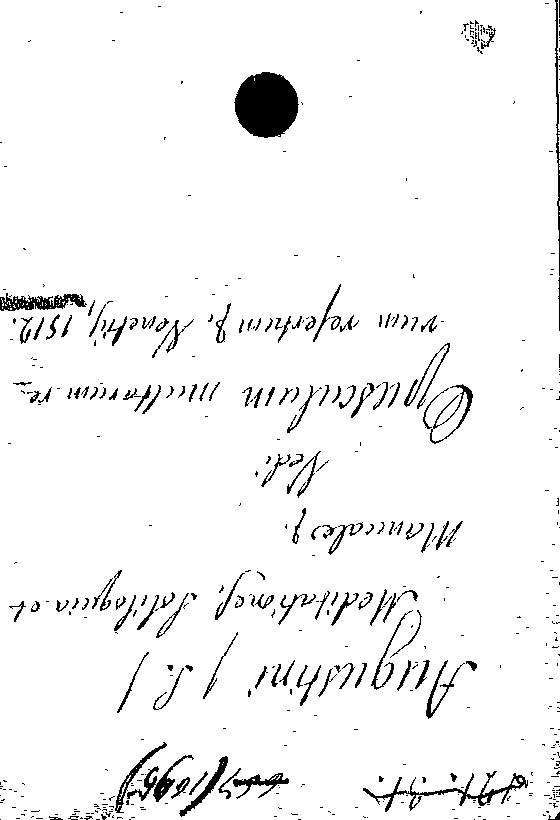 Augustini (S.)
Meditationes, Soliloquia et
Manuale 8.
Vedi
Opusculum multarum re-
rum refertum 8. Venetijs, 1512.